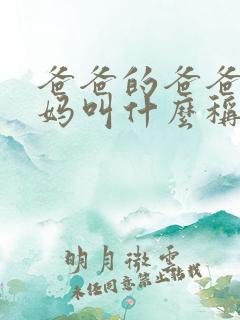 爸爸的爸爸
妈叫什麼稱
明月微云
未经同意禁止转载